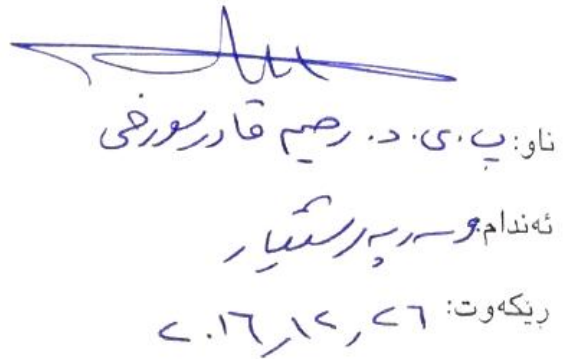 ناو: پ.ی.د. رحیم قادر سورخی
ئەندام و سەرپەرشتیار
رێکەوت: ٢٦, ١٢, ٢٠١٦